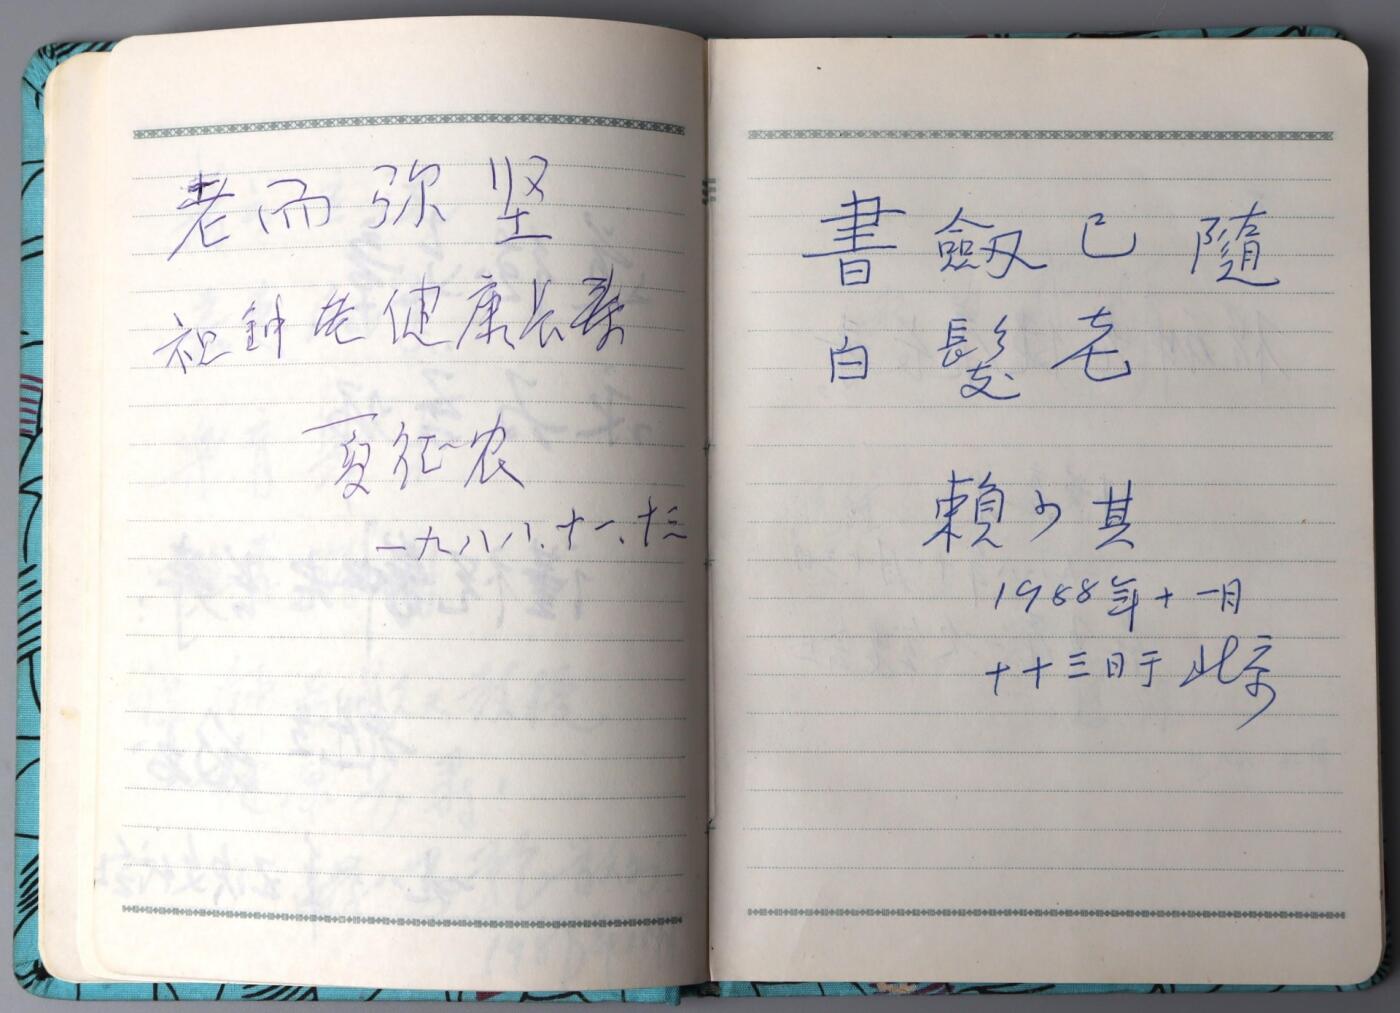 老而弥坚
祝钟老健康长寿
夏征农
一九八八、十一、十三
書劔已隨
白髮老
賴少其
1988年十一月
十十三日于北京